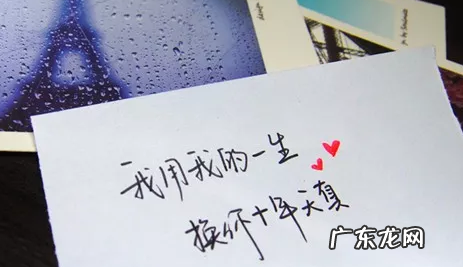 我用我的一生
换你十年天真
广东龙网